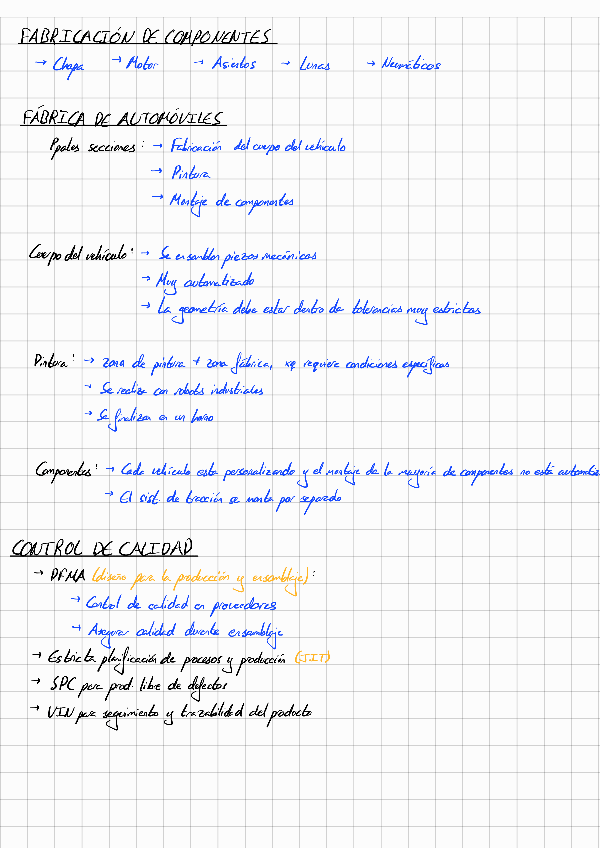 FABRICACIÓN DE COMPONENTES
→ Chapa → Motor → Asientos → Lunas → Neumáticos
FÁBRICA DE AUTOMÓVILES
Ppales secciones: → Fabricación del cuerpo del vehículo
→ Pintura
→ Montaje de componentes
Cuerpo del vehículo: → Se ensamblan piezas mecánicas
→ Muy automatizado
→ La geometría debe estar dentro de tolerancias muy estrictas
Pintura: → zona de pintura ≠ zona fábrica, xq requiere condiciones específicas
→ Se realiza con robots industriales
→ Se finaliza en un horno
Componentes: → Cada vehículo esta personalizando y el montaje de la mayoría de componentes no está
→ El sist. de tracción se monta por separado
CONTROL DE CALIDAD
→ DFMA (diseño para la producción y ensamblaje):
→ Control de calidad en proveedores
→ Asegurar calidad durante ensamblaje
→ Estricta planificación de procesos y producción (JIT)
→ SPC para prod. libre de defectos
→ VIN para seguimiento y trazabilidad del producto